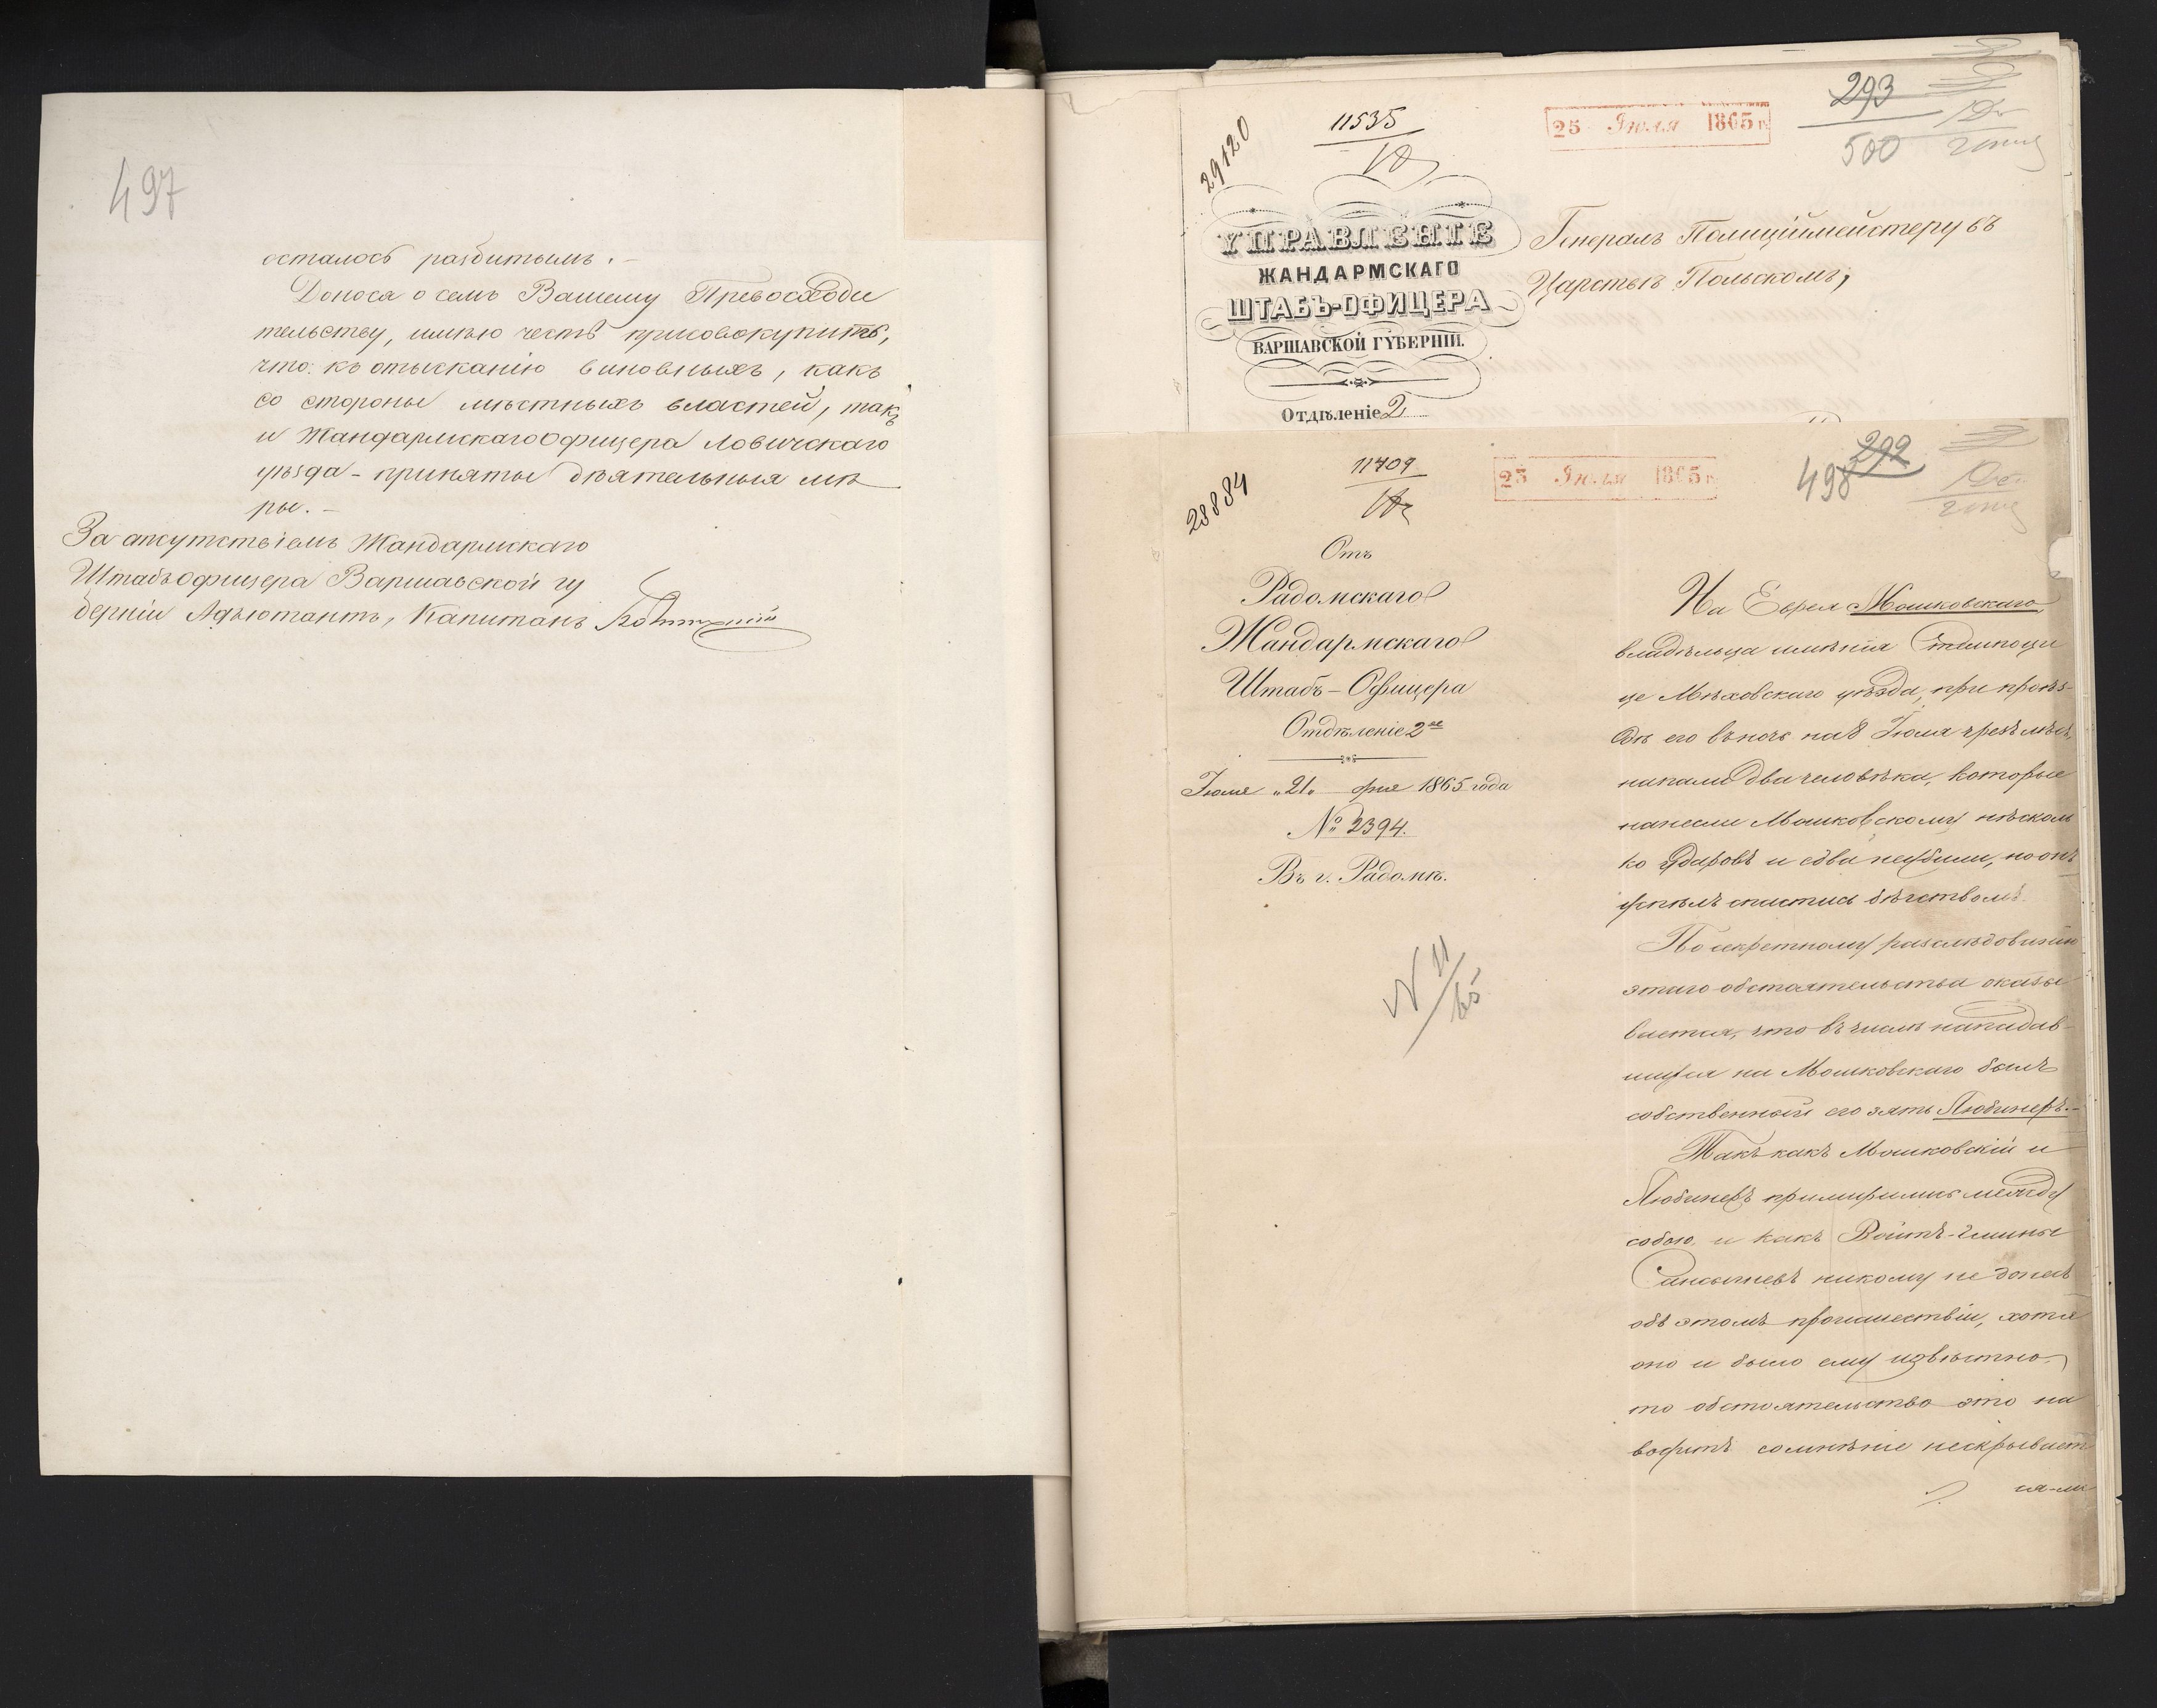 497
осталось разбитымъ.—
Донося о семъ Вашему Превосходи
тельству, имѣю честь присовокупить,
что: къ отысканію виновныхъ, какъ
со стороны мѣстныхъ властей, такъ
и Жандармскаго Офицера Ловичскаго
уѣзда - приняты дѣятельныя мѣ
ры.—
За отсутствіемъ Жандармскаго
Штабъ Офицера Варшавской гу
берніи Адъютантъ, Капитанъ
29120
11535
25 Іюля 1865 г.
293
500
УПРАВЛЕНІЕ
ЖАНДАРМСКАГО
ШТАБЪ-ОФИЦЕРА
ВАРШАВСКОЙ ГУБЕРНІИ.
Отдѣленіе 2
Генералъ Полиціймейстеру въ
Царствѣ Польскомъ,
28884
11409
23 Іюля 1865 г.
292
498
Отъ
Радомскаго
Жандармскаго
Штабъ-Офицера
Отдѣленіе 2ое
Іюля „21„ дня 1865 года
№ 2394.
Въ г. Радомѣ.
N 11/65
На Еврея Мошковскаго
владѣльца имѣнія
це Мѣховскаго уѣзда, при проѣз-
дѣ его въ ночь на 8 Іюля чрезъ лѣсъ,
напали два человѣка, которые
нанесли Мошковскому нѣсколь
ко ударовъ и едва не убили, но онъ
успѣлъ спастись бѣгствомъ.
По секретному разслѣдованію
этаго обстоятельства оказы
вается, что въ числѣ нападав-
шихъ на Мошковскаго былъ
собственный его зять Любинеръ.—
Такъ какъ Мошковскій и
Любинеръ примирились между
собою и какъ Войтъ-гмины
никому не донесъ
объ этомъ происшествіи, хотя
оно и было ему извѣстно,
то обстоятельство это на
водитъ сомнѣніе нескрывает
ся-ли